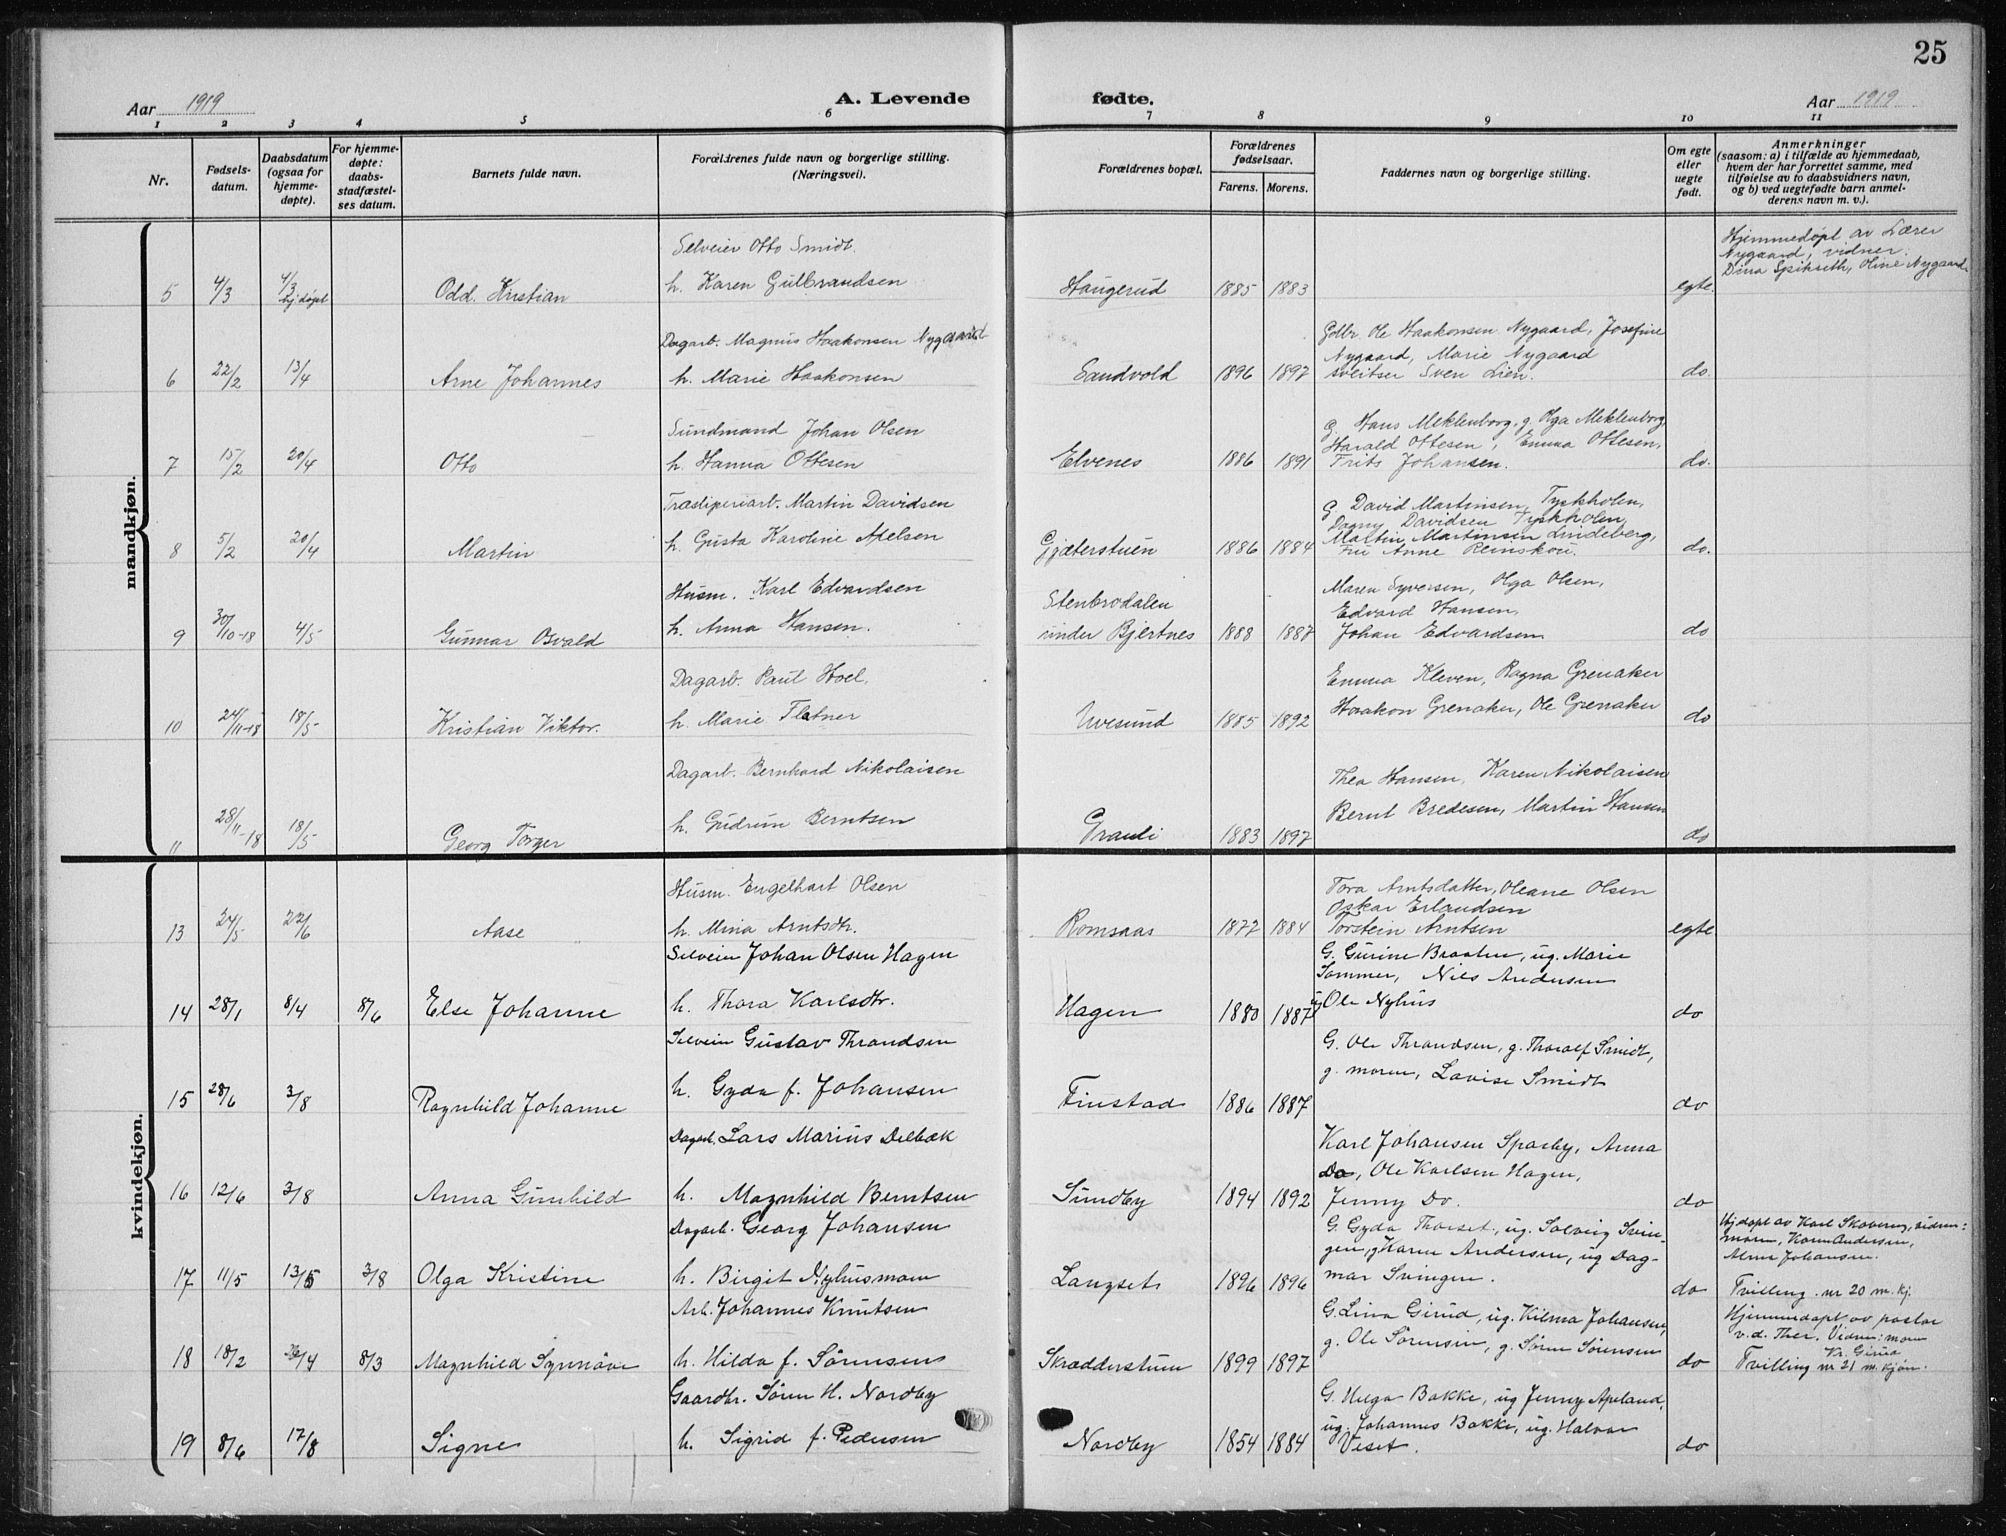 25
Aar 1919
A. Levende fødte.
Aar 1919
1 2 3 4 5 6 7 8 9 10 11
Nr.
Fødsels-
datum.
Daabsdatum
(ogsaa for
hjemme-
døpte).
For hjemme-
døpte:
daabs-
stadfæstel-
ses datum.
Barnets fulde navn.
Forældrenes fulde navn og borgerlige stilling.
(Næringsvei).
Forældrenes bopæl.
Forældrenes
fødselsaar.
Farens. Morens.
Faddernes navn og borgerlige stilling.
Om egte
eller
uegte
født.
Anmerkninger
(saasom: a) i tilfælde av hjemmedaab,
hvem der har forrettet samme, med
tilføielse av to daabsvidners navn,
og b) ved uegtefødte barn anmel-
derens navn m. v.).
mandkjøn.
Selveier Otto Smidt.
Hjemmedøpt av Lærer
Nygaard, vidner:
Dina Spikseth, Oline Nygaard.
5 4/3 4/3 hjdøpt Odd. Kristian h. Karen Gulbrandsen Haugerud 1885 1883 egte.
Dagarb. Magnus Haakonsen Nygaard
Gdbr. Ole Haakonsen Nygaard, Josefine
Nygaard, Marie Nygaard
6 22/2 13/4 Arne Johannes h. Marie Haakonsen Sandvold 1896 1897 sveitser Sven Lien. do.
Sundmand Johan Olsen
G. Hans Meklenborg, g. Olga Meklenborg
Harald Ottesen, Emma Ottesen,
7 15/2 20/4 Otto h. Hanna Ottesen Elvenes 1886 1891 Frits Johansen. do.
Træsliperiarb. Martin Davidsen
G. David Martinsen, Tyskholen,
Dagny Davidsen Tyskholen
Martin Martinsen Lindeberg,
8 5/2 20/4 Martin h. Gusta Karoline Apelsen Gjæterstuen 1886 1884 Fru Anne Reinskou. do.
Husm. Karl Edvardsen
Stenbrodalen
Maren Syversen, Olga Olsen,
Edvard Hansen,
9 30/10-18 4/5 Gunnar Osvald h. Anna Hansen. under Bjertnes 1888 1887 Johan Edvardsen do
Dagarb. Paul Hoel.
Emma Kleven, Ragna Grenaker
10 24/11-18 18/5 Kristian Viktor. h. Marie Flatner Uvesund 1885 1892 Haakon Grenaker, Ole Grenaker do
Dagarb. Bernhard Nikolaisen
Thea Hansen, Karen Nikolaisen
Bernt Bredesen, Martin Hansen
11 28/11-18 18/5 Georg Torger h. Gudrun Berntsen Grauli 1883 1897 do
kvindekjøn.
Husm. Engelhart Olsen
Tora Arntsdatter, Oleane Olsen
Oskar Erlandsen
13 24/5 22/6 Aase h. Mina Arntsdtr. Romsaas 1877 1884 Torstein Arntsen egte
Selveier Johan Olsen Hagen
G. Gurine Braaten, ug. Marie
Sommer, Nils Andersen
14 28/1 8/4 8/6 Else Johanne h. Thora Karlsdtr. Hagen 1880 1887 ug Ole Nyhus do
Selveier Gustav Thrandsen
G. Ole Thrandsen, g. Thoralf Smidt,
g. moren, Lovise Smidt
15 28/6 3/8 Ragnhild Johanne h. Gyda f. Johansen Finstad 1886 1887 do
Dagarb. Lars Marius Delbæk
Karl Johansen Sparby, Anna
Do, Ole Karlsen Hagen,
16 12/6 3/8 Anna Gunhild h. Magnhild Berntsen Sundby 1894 1892 Jenny Do. do
Dagarb. Georg Johansen
G. Gyda Thorset, ug. Solveig Svin-
gen, g Karen Andersen, ug Dag-
Hjdøpt av Karl Skovering, vidner:
moren, Karen Andersen,
Alma Johansen.
17 11/5 13/5 3/8 Olga Kristine h. Birgit Nyhusmoen Langset 1896 1896 mar Svingen. do Tvilling. nr 20 m. kj.
Arb. Johannes Knutsen
G. Lina Girud, ug. Hilma Johansen,
g. Ole Sørensen, g. Sørm Sørensen
Hjemmedøpt av pastor
v.d. Ther. Vidner: moren
Kr. Girud
18 18/2 /4 8/3 Magnhild Synnøve h. Hilda f. Sørensen Skrædderstuen 1899 1897 do Tvilling nr 21 m. kjøn.
Gaardbr. Søren H. Nordby
G. Helga Bakke, ug Jenny Apeland,
ug. Johannes Bakke, ug. Halvor
19 8/6 17/8 Signe h. Sigrid f. Pedersen Nordby 1854 1884 Veset. do